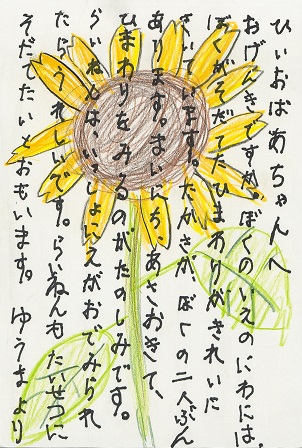 ひいおばあちゃんへ
おげんきですか。ぼくのいえのにわには、
ぼくがそだてたひまわりがきれいに
さいています。たかさが ぼくの二人ぶん
あります。まいにち、あさおきて、
ひまわりをみるのがたのしみです。
らいねんは、いっしょにえがおでみられ
たら、うれしいです。らいねんもたいせつに
そだてたいとおもいます。 ゆうまより